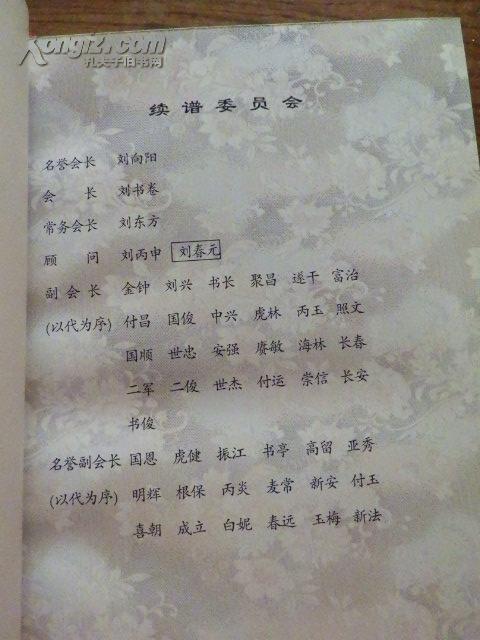 Kongfz.com
孔夫子旧书网
续谱委员会
名誉会长 刘向阳
会长 刘书卷
常务会长 刘东方
顾问 刘丙申 刘春元
副会长 金钟 刘兴 书长 聚昌 遂干 富治
(以代为序) 付昌 国俊 中兴 虎林 丙玉 照文
国顺 世忠 安强 赓敏 海林 长春
二军 二俊 世杰 付运 崇信 长安
书俊
名誉副会长 国恩 虎健 振江 书亭 高留 亚秀
(以代为序) 明辉 根保 丙炎 麦常 新安 付玉
喜朝 成立 白妮 春远 玉梅 新法